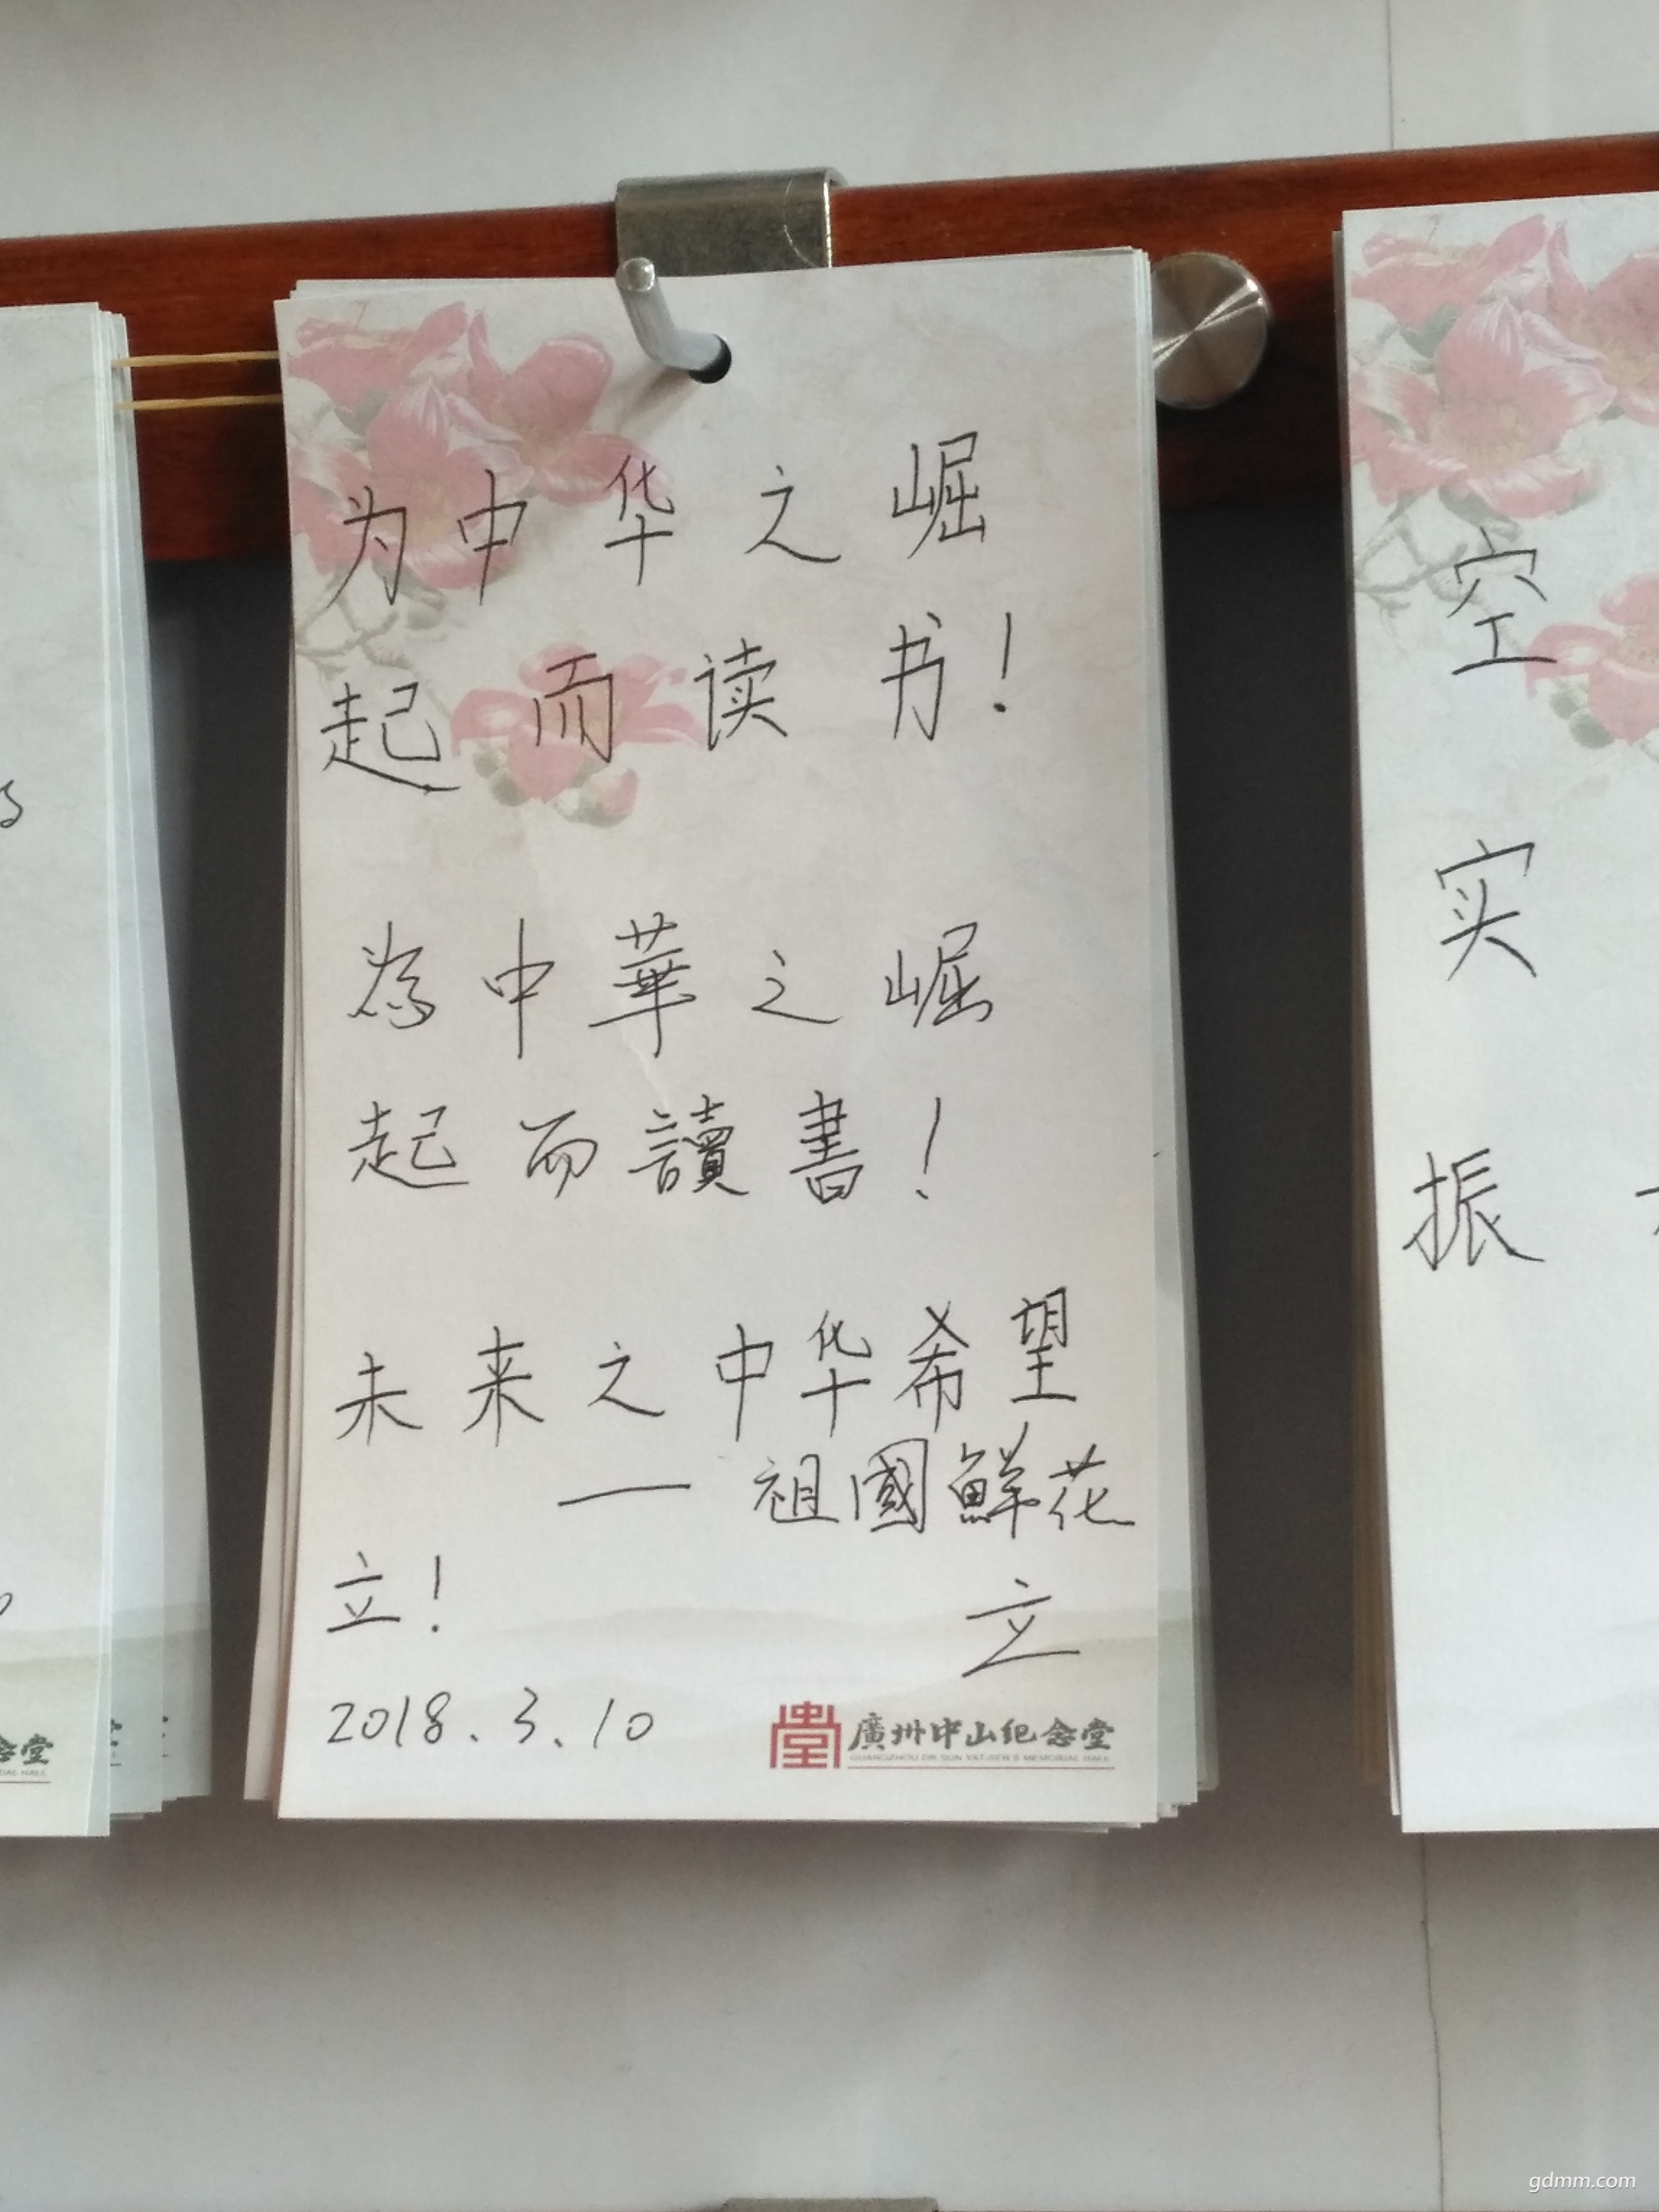 为中华之崛
起而读书！
為中華之崛
起而讀書！
未来之中华希望
— 祖國鲜花
立！
立
2018.3.10
廣州中山纪念堂
GUANGZHOU DR SUN YAT-SEN'S MEMORIAL HALL
空
实
振
念堂
gdmm.com